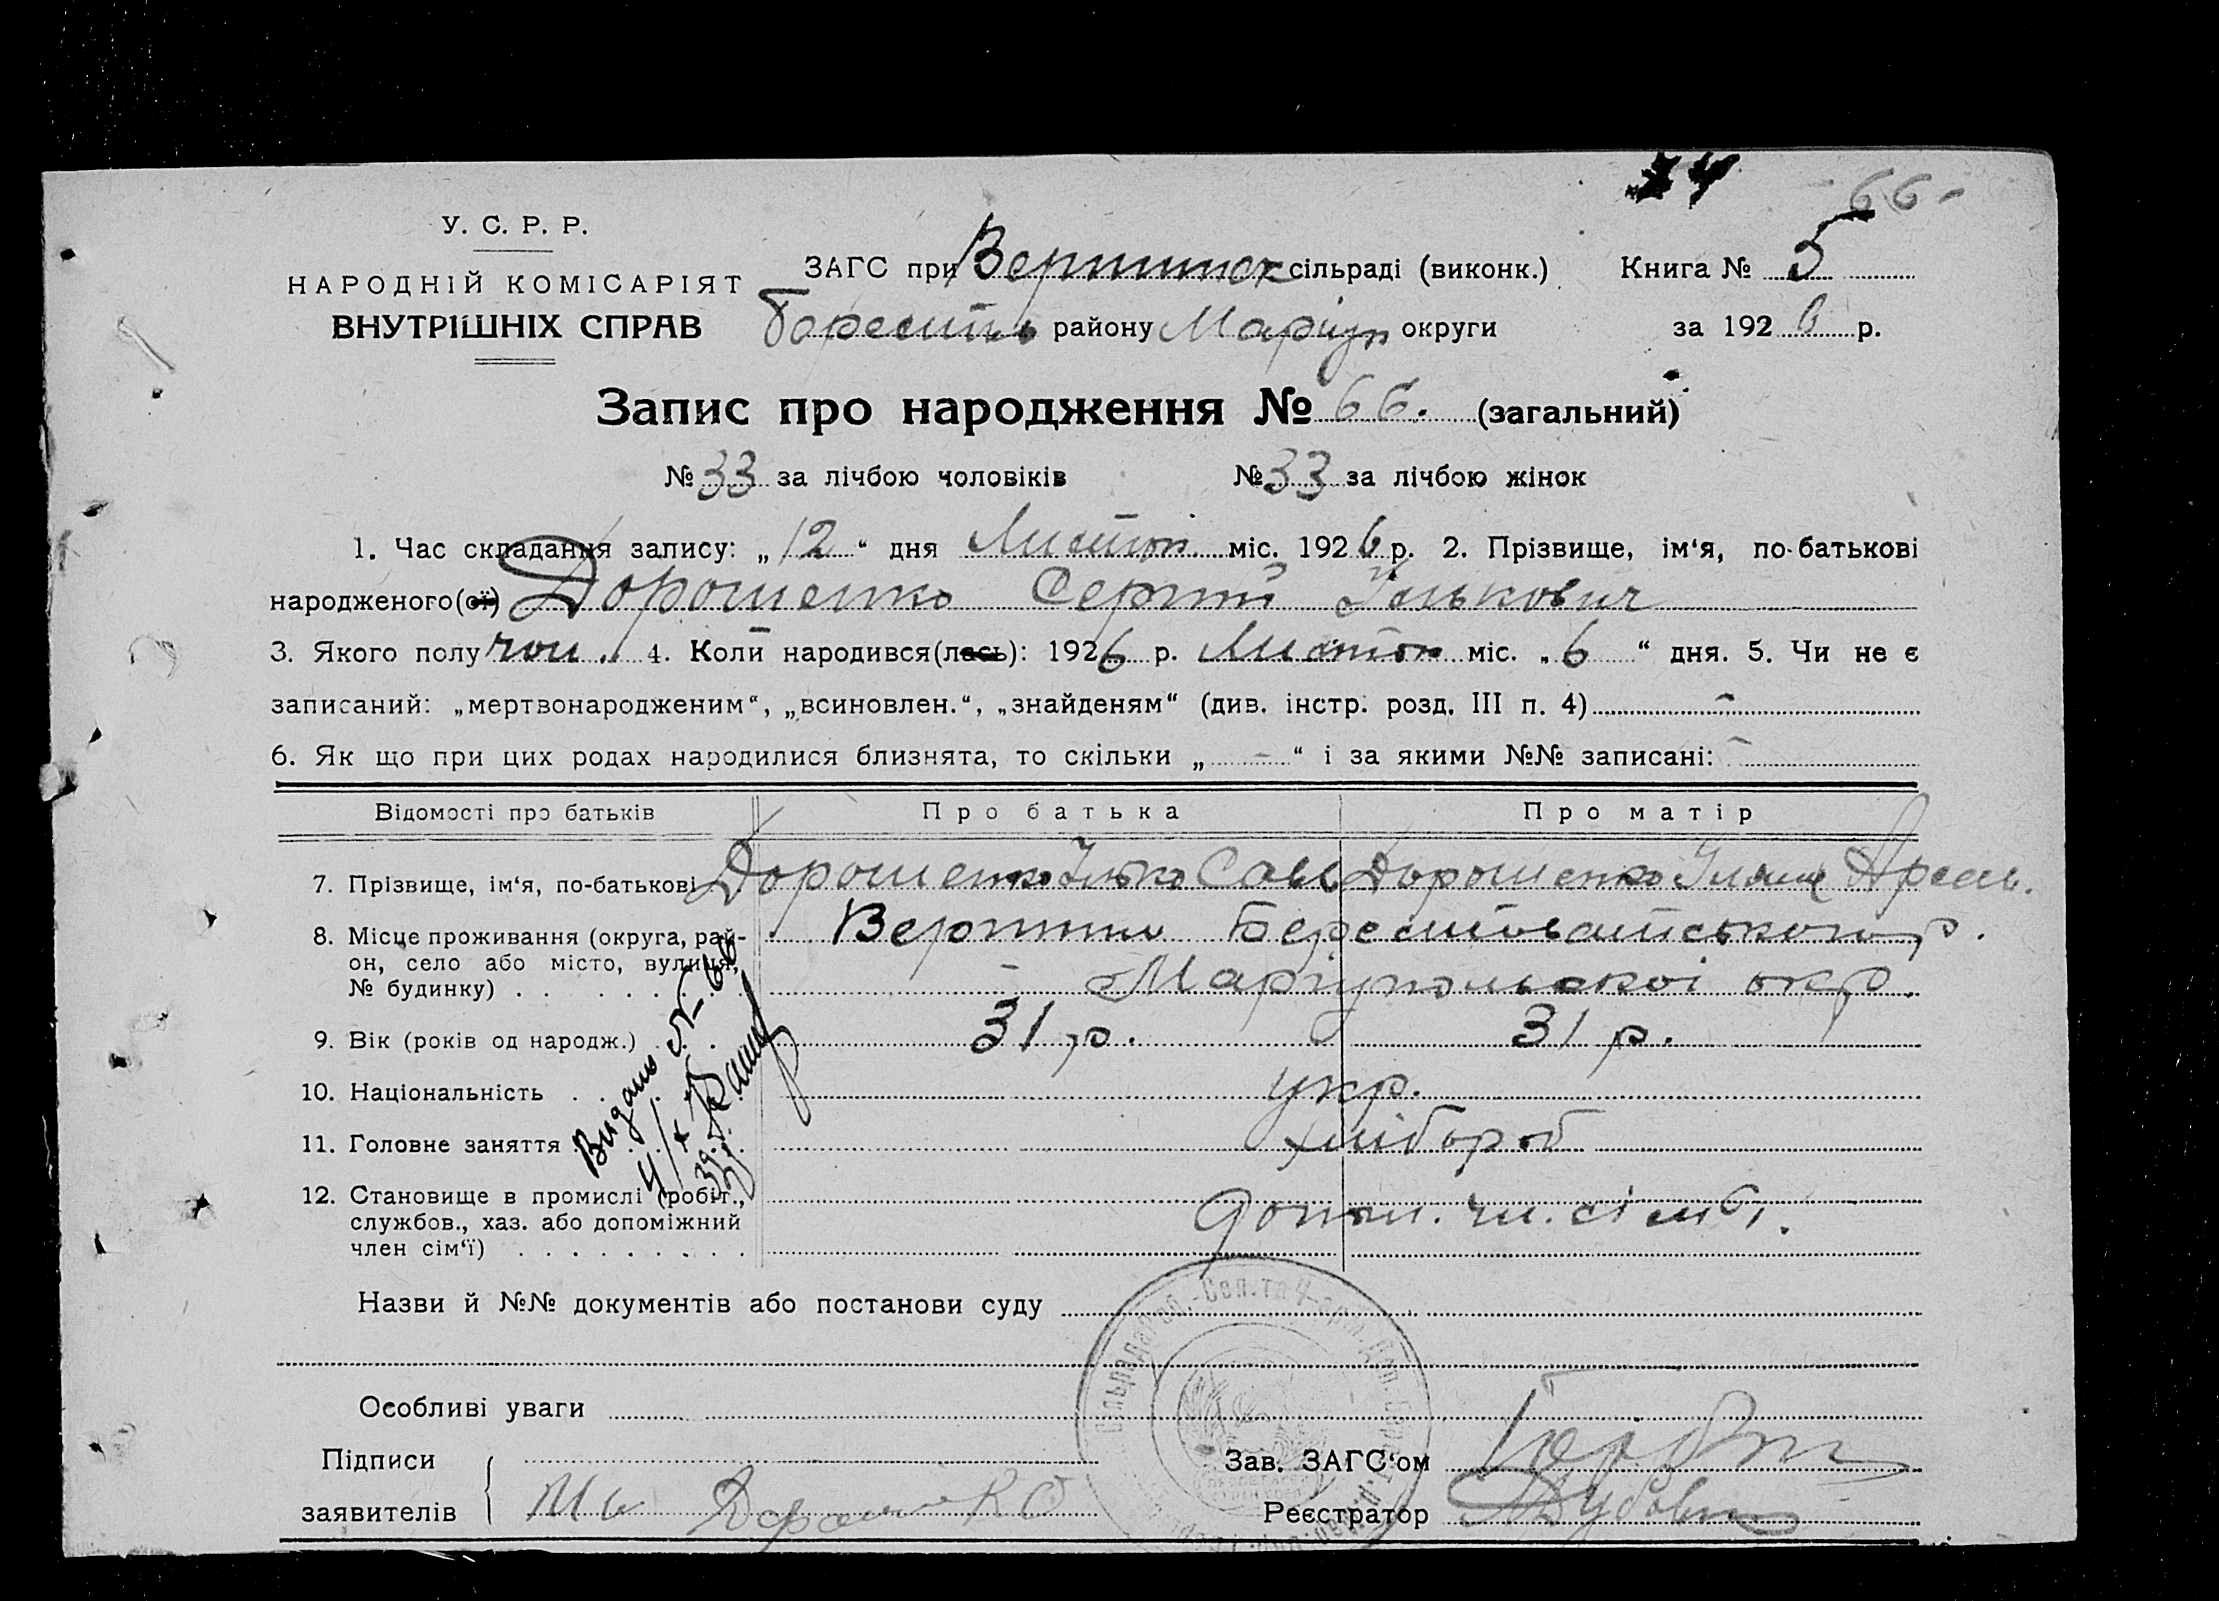 66-
У. С. Р. Р.
НАРОДНІЙ КОМІСАРІЯТ
ВНУТРІШНІХ СПРАВ
ЗАГС при сільраді (виконк.) Книга № 5
району Маріуп округи за 1926 р.
Запис про народження № 66. (загальний)
№ 33 за лічбою чоловіків № 33 за лічбою жінок
1. Час складання запису: „12“ дня міс. 1926 р. 2. Прізвище, ім‘я, по-батькові
народженого(ої) Дорошенко Сергій Ількович
3. Якого полу чол. 4. Коли народився(лась): 1926 р. міс. „6“ дня. 5. Чи не є
записаний: „мертвонародженим“, „всиновлен.“, „знайденям“ (див. інстр. розд. III п. 4) -
6. Як що при цих родах народилися близнята, то скільки „-“ і за якими №№ записані: -
Відомості про батьків Про батька Про матір
7. Прізвище, ім‘я, по-батькові Дорошенко Ілько Сав Дорошенко Уляна
8. Місце проживання (округа, рай-
он, село або місто, вулиця,
№ будинку) . . . Берестоватського р.
Маріупольскої окр.
9. Вік (років од народж.) 31 р. 31 р.
10. Національність . укр.
11. Головне заняття хлібороб
12. Становище в промислі (робіт.,
службов., хаз. або допоміжний
член сім‘ї) . . . допом. чл. сімʼї.
Видано № 66
Назви й №№ документів або постанови суду
Особливі уваги
Підписи
заявителів Дорошенко
Зав. ЗАГС‘ом
Реєстратор